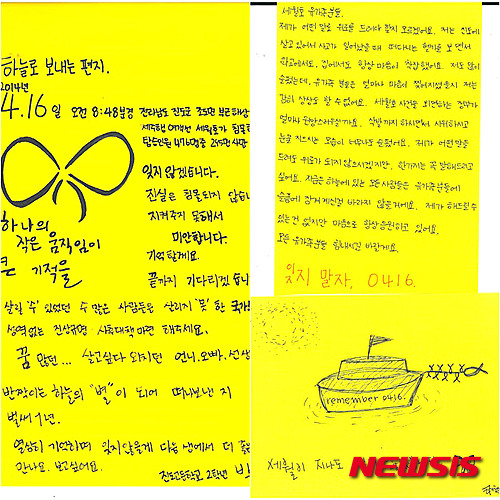 하늘로 보내는 편지.
2014년
4.16일 오전 8:48분경 전라남도 진도군 조도면 부근 해상
세월호가 침몰
탑승인원 476명중 295명 사망
잊지 않겠습니다.
진실은 침몰되지 않습니
지켜주지 못해서
미안합니다.
기억할게요.
끝까지 기다리겠습니
하나의
작은 움직임이
큰 기적을
살릴 '수' 있었던 수 많은 사람들은 살리지 '못'한 국가
성역없는 진상규명 사후대책마련 해주세요.
꿈 많던... 살고싶다 외치던 언니.오빠.선생
반짝이는 하늘의 "별"이 되어 떠나보낸 지
벌써 1년.
열심히 기억하며 잊지않을게 다음 생에서 더 좋은
만나요. 보고싶어요.
진도고등학교 2학년
세월호 유가족분들.
제가 어떤 말로 위로를 드려야 할지 모르겠어요. 저는 진도에
살고있어서 사고가 일어났을 때 떠다니는 헬기를 보면서
학교에서도, 집에서도 항상 마음이 착잡했어요. 저도 많이
슬펐는데, 유가족 분들은 얼마나 마음이 찢어지셨을지 저는
감히 상상도 할 수 없어요. 세월호 사건을 외면하는 정부가
얼마나 원망스러우실까요. 삭발까지 하시면서 시위하시고
눈물 지으시는 모습이 너무나도 슬펐어요. 제가 어떤 말을
드려도 위로가 되지 않으시겠지만, 한가지는 꼭 말해드리고
싶어요. 지금은 하늘에 있는 모든 사람들은 유가족분들이
슬픔에 잠겨계시길 바라지 않을거에요. 제가 해드릴 수
있는건 없지만 마음으로 항상 응원하고 있어요.
모든 유가족분들 힘내시길 바랄게요.
잊지 말자, 0416.
remember 0416.
세월이 지나도
NEWSIS